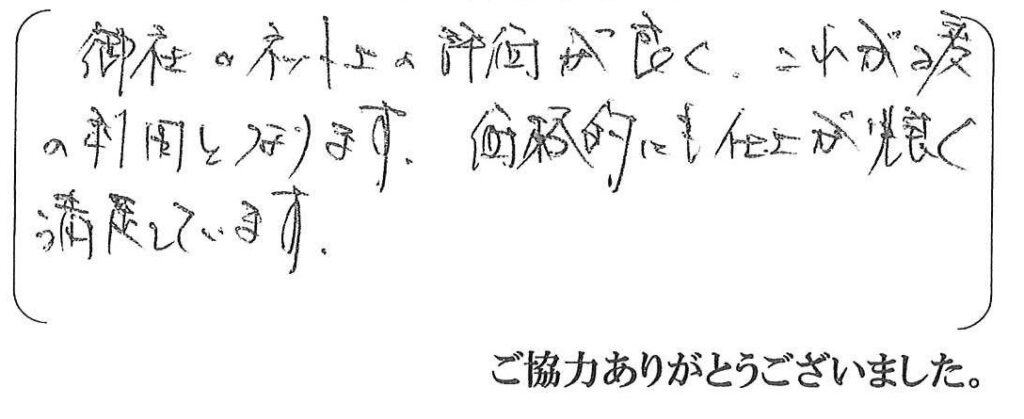 御社のネット上の評価が良く、これが2度
の利用となります。価格的にも仕上がり良く
満足しています。
ご協力ありがとうございました。